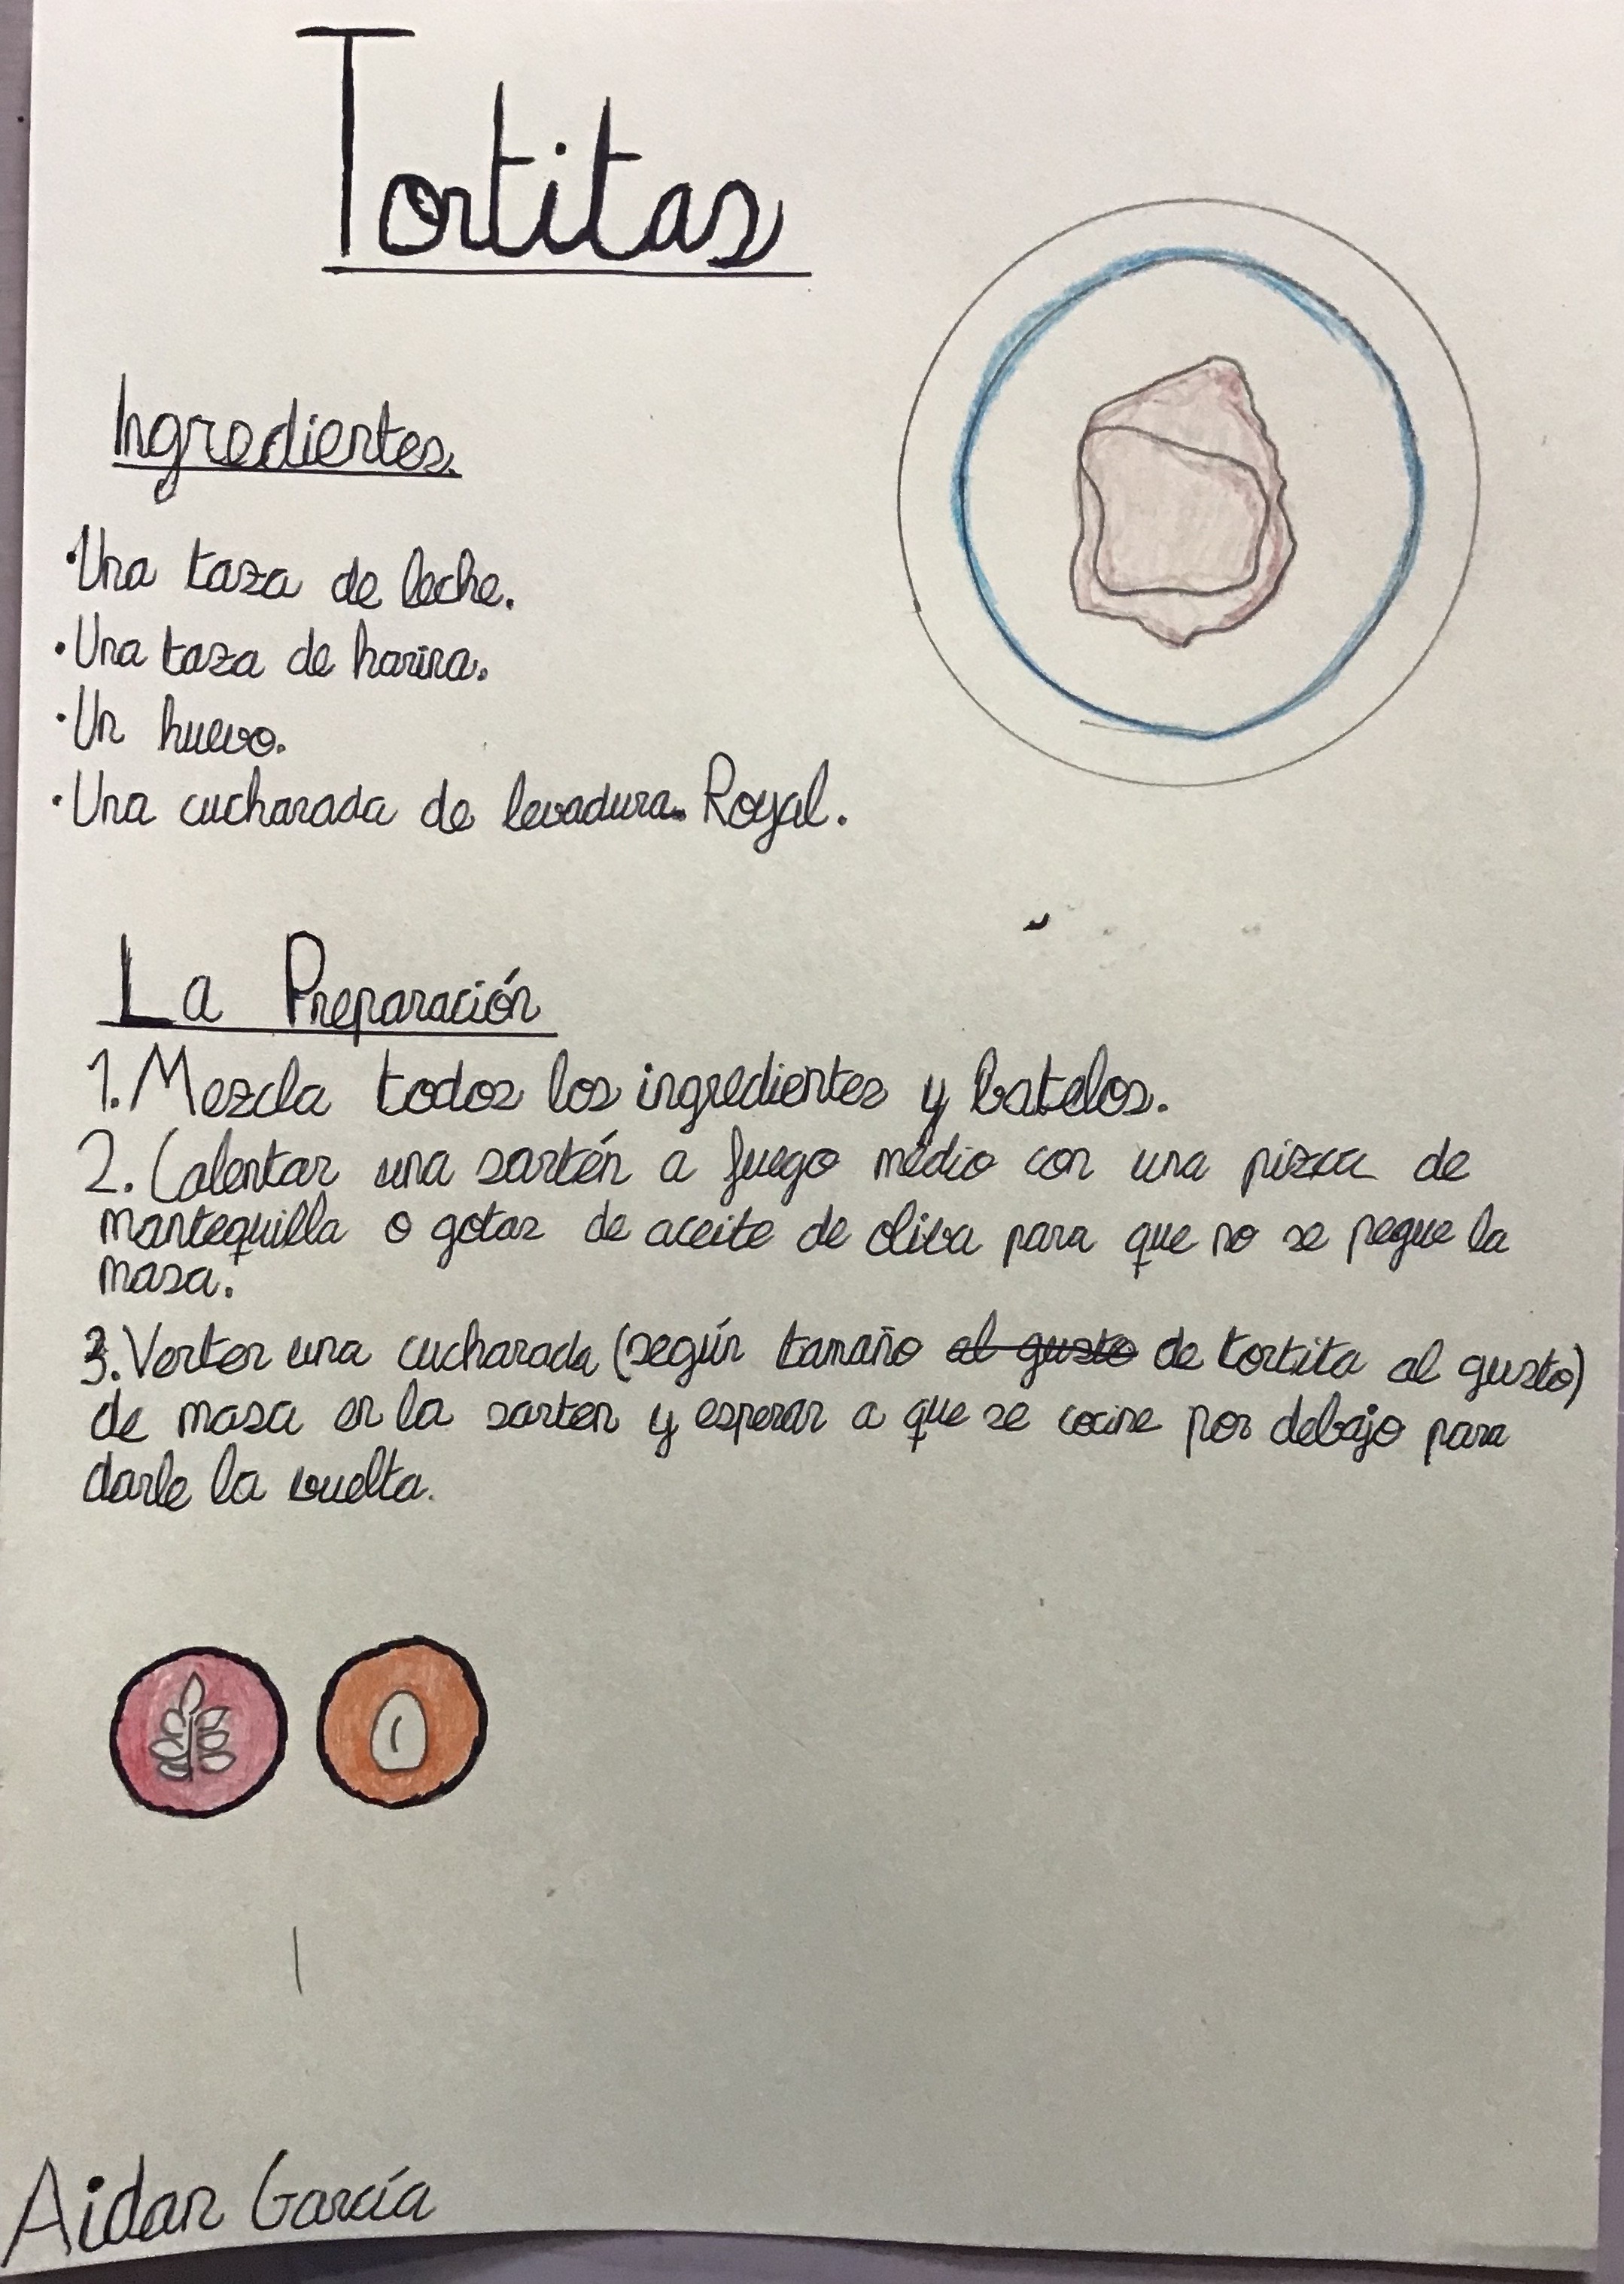 Tortitas
Ingredientes.
·Una taza de leche.
·Una taza de harina.
·Un huevo.
·Una cucharada de levadura. Royal.
La Preparación
1. Mezcla todos los ingredientes y batelos.
2. Calentar una sartén a fuego medio con una pizca de
mantequilla o gotas de aceite de oliva para que no se pegue la
masa.
3. Verter una cucharada (según tamaño al gusto de tortita al gusto)
de masa en la sarten y esperar a que se cocine por debajo para
darle la vuelta.
Aidan García